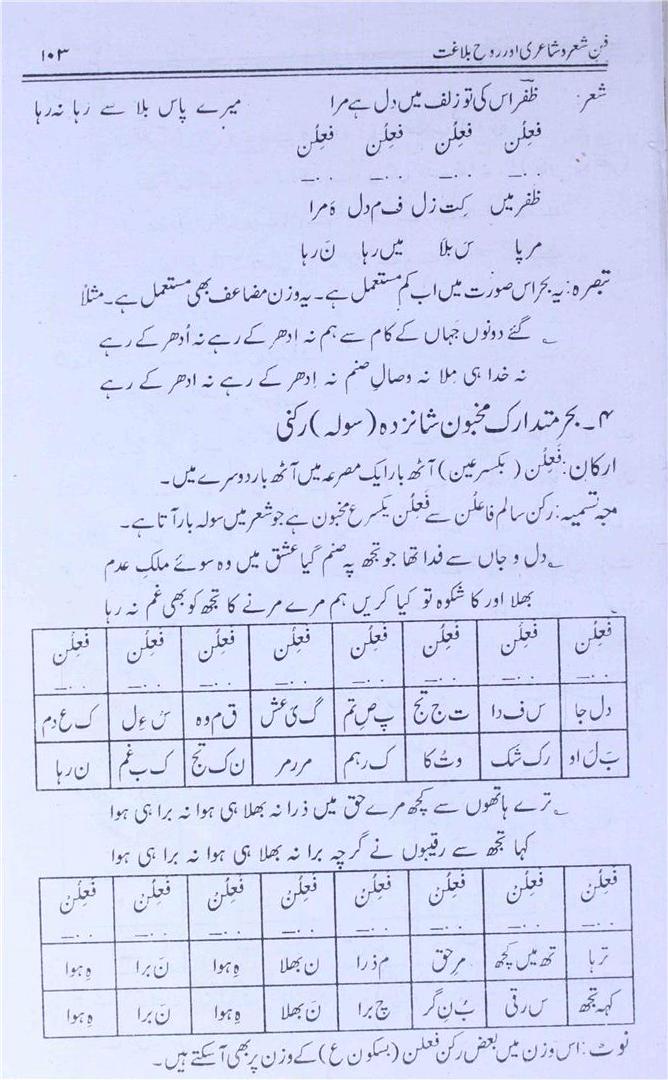 فنِ شعر و شاعری اور روحِ بلاغت ۱۰۳
شعر: ظفر اس کی تو زلف میں دل ہے مرا میرے پاس بلا سے رَہا نہ رہا
فَعِلُن فَعِلُن فَعِلُن فَعِلُن
ظفر میں کِت زل ف م دل ہَ مرا
مر پا سَ بلَا میں رہا نَ رہا
تبصرہ: یہ بحر اس صورت میں اب کم مستعمل ہے۔ یہ وزن مضاعف بھی مستعمل ہے۔ مثلاً
گئے دونوں جَہاں کے کام سے ہم نہ اِدھر کے رہے نہ اُدھر کے رہے
نہ خدا ہی مِلا نہ وصالِ صنم نہ اِدھر کے رہے نہ ادھر کے رہے
۴۔ بحر متدارک مخبون شانزدہ (سولہ) رکنی
ارکان: فَعِلُن (بکسر عین) آٹھ بار ایک مصرعہ میں آٹھ بار دوسرے میں۔
وجہ تسمیہ: رکن سالم فاعلُن سے فَعِلُن بکسر ع مخبون ہے جو شعر میں سولہ بار آتا ہے۔
دل و جاں سے فدا تھا جو تجھ پہ صنم گیا عشق میں وہ سوئے ملکِ عدم
بھلا اور کا شکوہ تو کیا کریں ہم مرے مرنے کا تجھ کو بھی غم نہ رہا
فَعِلُن فَعِلُن فَعِلُن فَعِلُن فَعِلُن فَعِلُن فَعِلُن فَعِلُن
دل جا س ف دا ت ج تج پ صِ تم گ ئ عش ق م وہ سُ ءِ ل ک ع دم
بَ لَ او رک شک و تُ کا ک رہم مر مر ن ک تج ک ب غم ن رہا
ترے ہاتھوں سے کچھ مرے حق میں ذرا نہ بھلا ہی ہوا نہ برا ہی ہوا
کہا تجھ سے رقیبوں نے گرچہ برا نہ بھلا ہی ہوا نہ برا ہی ہوا
فَعِلُن فَعِلُن فَعِلُن فَعِلُن فَعِلُن فَعِلُن فَعِلُن فَعِلُن
تر ہا تھ میں کچھ مِر حق م ذرا ن بھلا ہِ ہوا نَ برا ہِ ہوا
کہہ تجھ س رقی بُ نِ گر چ برا نَ بھلا ہِ ہوا نَ برا ہِ ہوا
نوٹ: اس وزن میں بعض رکن فعلن (بسکون ع) کے وزن پر بھی آ سکتے ہیں۔